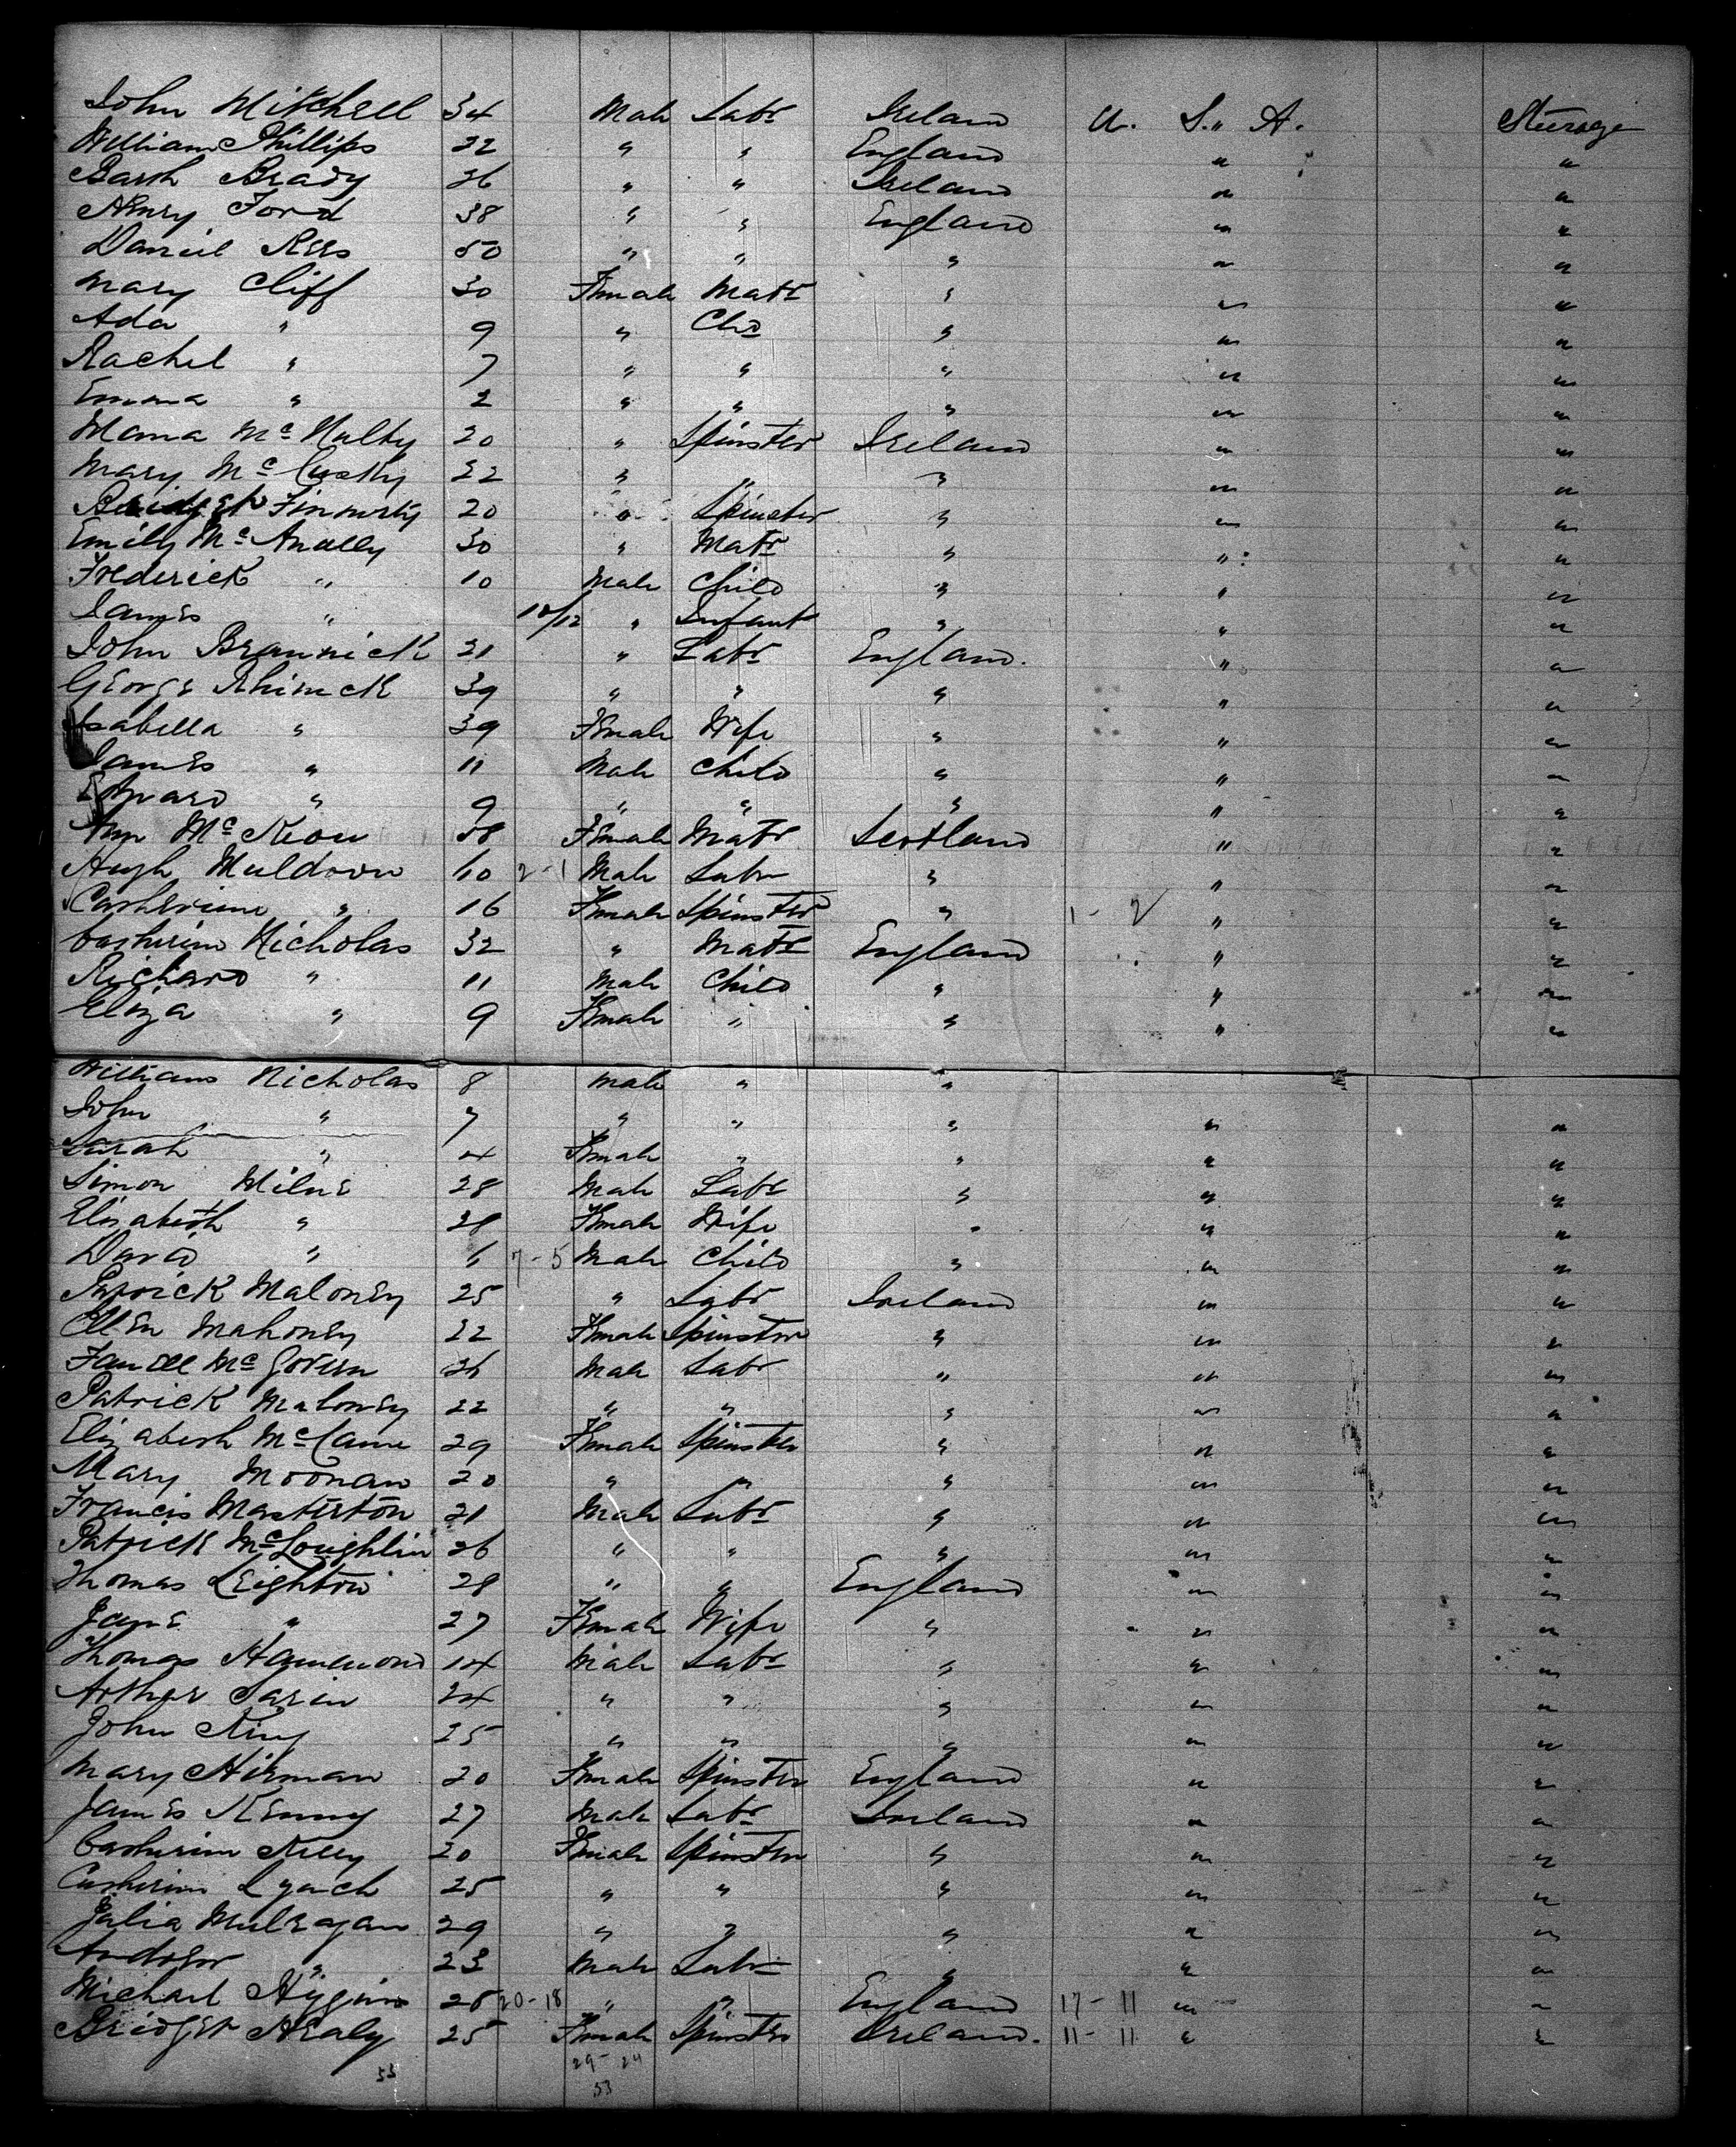 John Mitchell 34 Male Labr Ireland U. S. A. Steerage
William Phillips 22 " " England " "
Barth Brady 26 " " Ireland " "
Henry Ford 38 " " England " "
Daniel Rees 50 " " " " "
Mary Cliff 30 Female Matr " " "
Ada " 9 " Chd " " "
Rachel " 7 " " " " "
Emma " 2 " " " " "
Mc Nulty 20 " Spinster Ireland " "
Mary Mc Cusky 22 " " " " "
Bridget 20 " Spinster " " "
Emily Mc Anally 30 " Matr " " "
Frederick " 10 Male Child " " "
James " 10/12 " Infant " " "
John Brannick 21 " Labr England. " "
George Rhimck 39 " " " " "
Isabella " 39 Female Wife " " "
James " 11 Male Child " " "
Edward " 9 " " " " "
Ann Mc Keon 58 Female Matr Scotland " "
Hugh Muldoon 60 2-1 Male Labr " " "
Catherine " 16 Female Spinster " 1-2 " "
Catherine Nicholas 32 " Matr England " "
Richard " 11 Male Child " " "
Eliza " 9 Female " " " "
William Nicholas 8 Male " "
John " 7 " " " " "
Sarah " 4 Female " " " "
Simon Milne 28 Male Labr " " "
Elizabeth " 28 Female Wife " " "
David " 6 7-5 Male Child " " "
Patrick Maloney 25 " Labr Ireland " "
Ellen Mahoney 22 Female Spinster " " "
Mc Govern 26 Male Labr " " "
Patrick Maloney 22 " " " " "
Elizabeth Mc Cann 29 Female Spinster " " "
Mary Moonan 20 " " " " "
Francis Masterton 21 Male Labr " " "
Patrick Mc Loughlin 26 " " " " "
Thomas Leighton 28 " " England " "
Jane " 27 Female Wife " " "
Thomas Hammond 14 Male Labr " " "
Arthur Sarin 24 " " " " "
John King 25 " " " " "
Mary Hirman 20 Female Spinster England " "
James Kenny 27 Male Labr Ireland " "
Catherine Kelly 20 Female Spinster " " "
Catherine Lynch 25 " " " " "
Julia Mulragan 29 " " " " "
Andrew " 23 Male Labr " " "
Michael Higgins 25 20-18 " " England 17-11 " "
Bridget Healy 25 Female Spinster Ireland. 11-11 " "
53 29-24
53